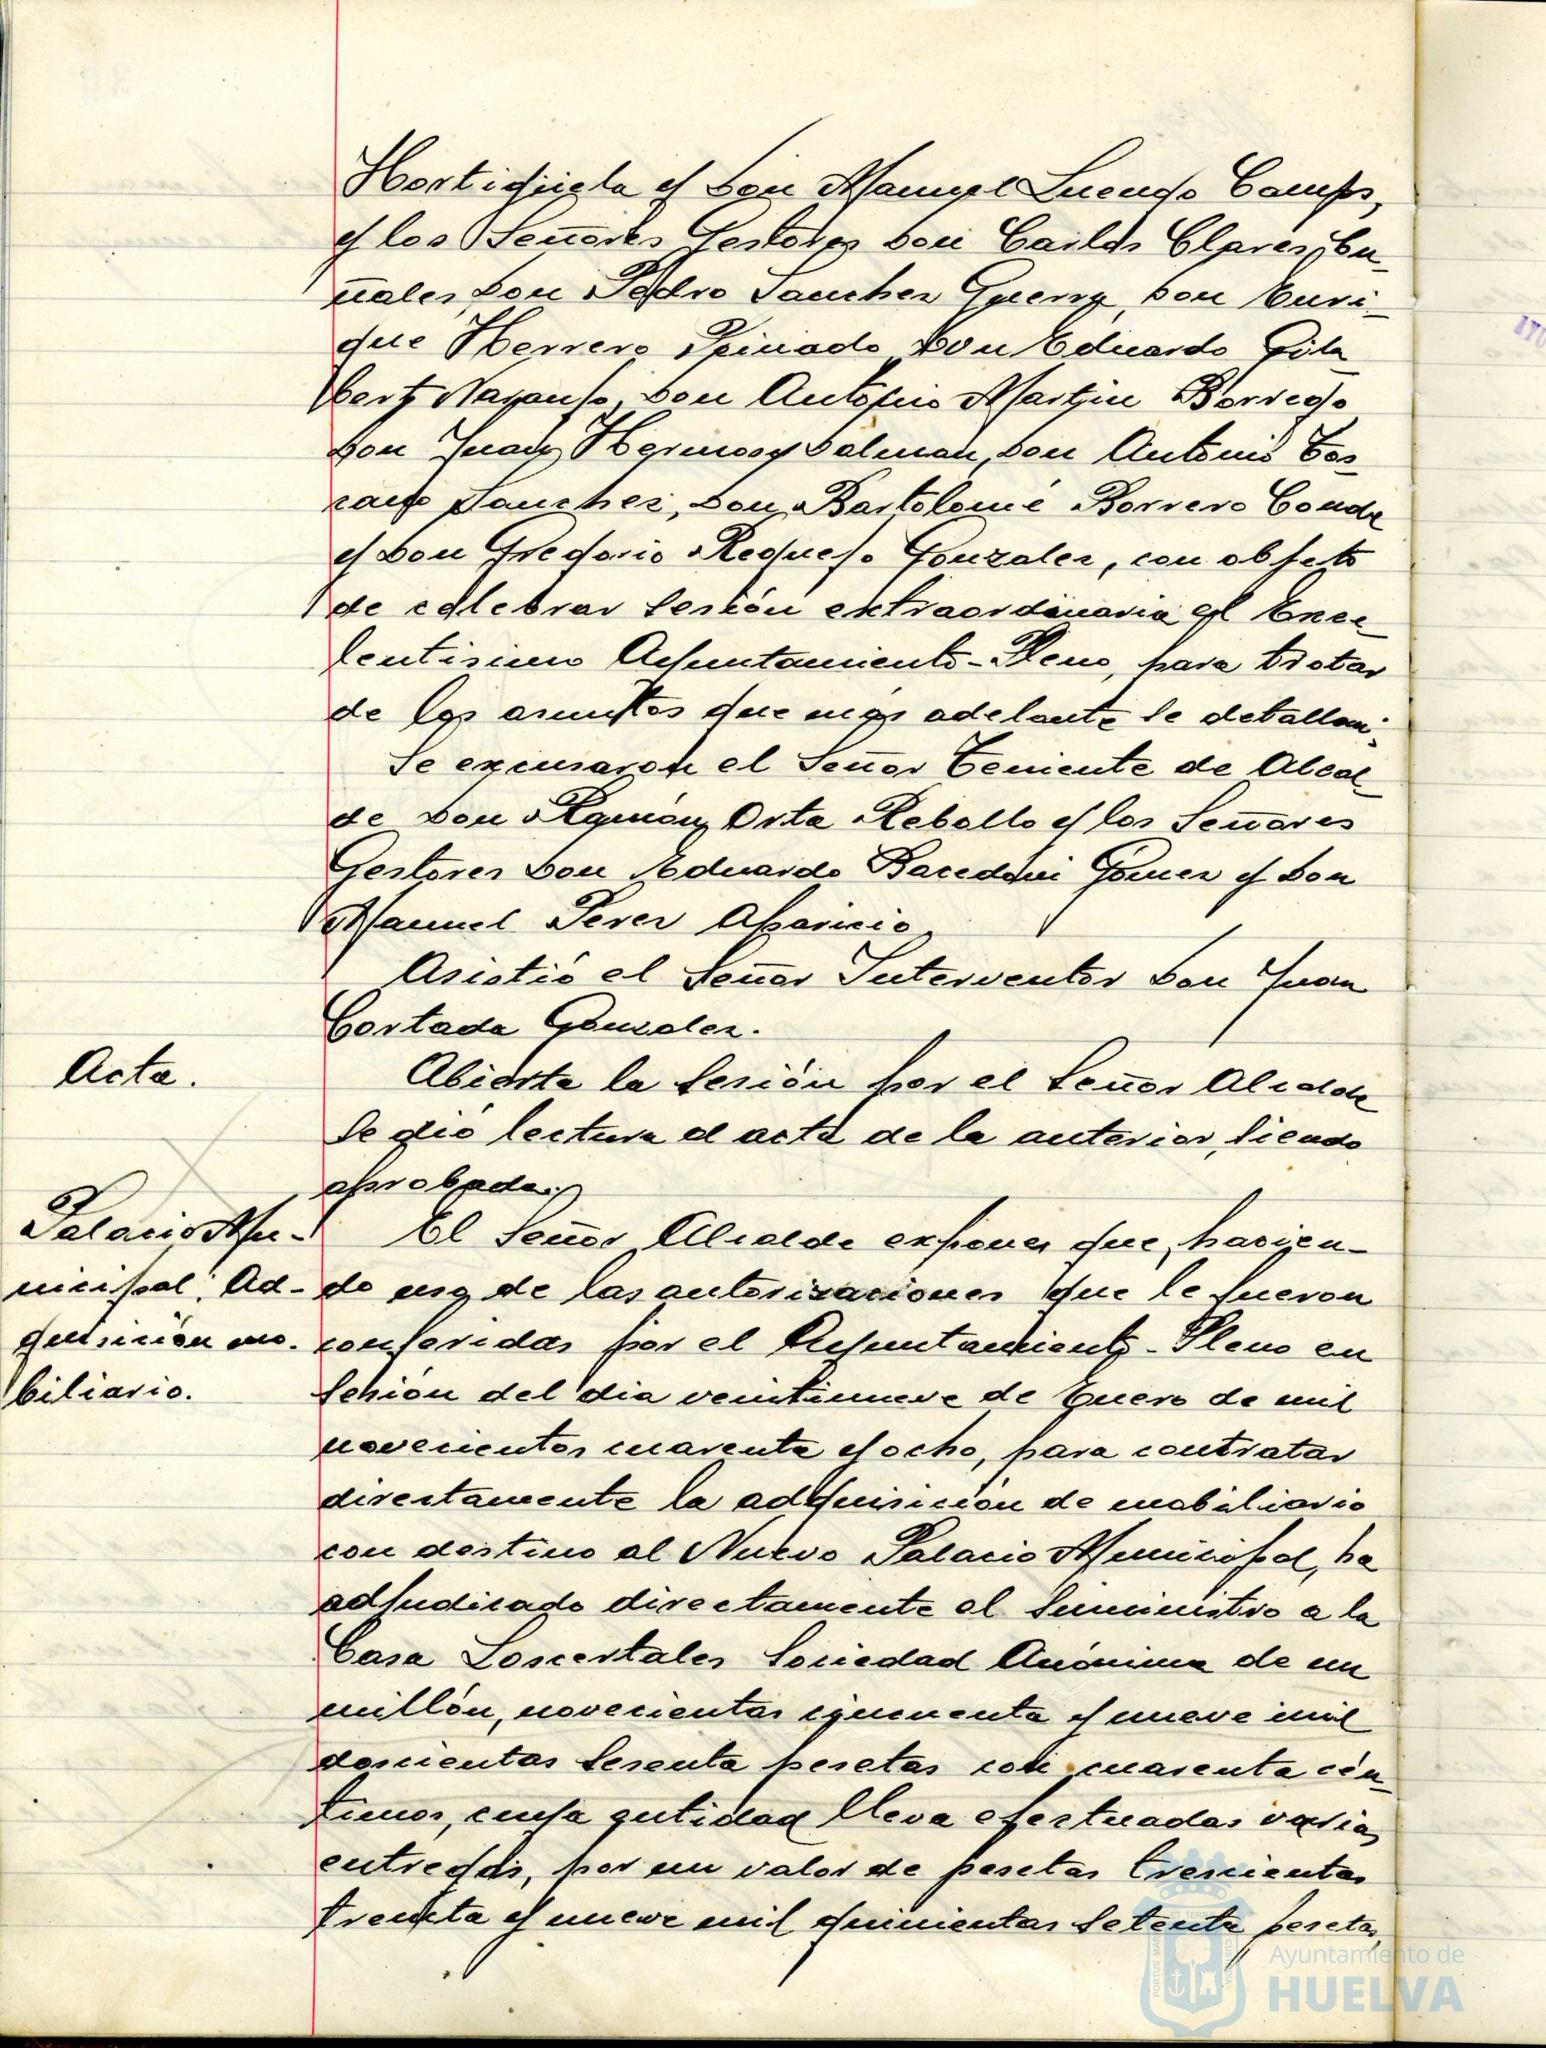 Hortigüela y Don Manuel Luengo Camps,
y los Señores Gestores Don Carlos Clares Bu-
ñales, Don Pedro Sanchez Guerra, Don Enri-
que Herrero Peinado, Don Eduardo Gila
bert Naranjo, Don Antonio Martin Borrego
Don Juan Hermosa Dalman, Don Antonio Tos-
cano Sanchez, Don Bartolomé Borrero Conde
y Don Gregorio Requejo Gonzalez, con objeto
de celebrar sesión extraordinaria el Exce-
lentisimo Ayuntamiento-Pleno, para tratar
de los asuntos que más adelante se detallan;
Se excusaron el Señor Teniente de Alcal-
de Don Ramón Orta Rebollo y los Señores
Gestores Don Eduardo Bacedoni Gómez y Don
Manuel Perez Aparicio
Asistió el Señor Interventor Don Juan
Cortada Gonzalez.
Acta.
Abierta la sesión por el Señor Alcalde
se dió lectura al acta de la anterior, siendo
aprobada.
Palacio Mu-
nicipal: Ad-
quisición mo-
biliario.
El Señor Alcalde expone que, hacien-
do uso de las autorizaciones que le fueron
conferidas por el Ayuntamiento-Pleno en
sesión del día veintinueve de Enero de mil
novecientos cuarenta y ocho, para contratar
directamente la adquisición de mobiliario
con destino al Nuevo Palacio Municipal, ha
adjudicado directamente el suministro a la
Casa Loscertales Sociedad Anónima de un
millón, novecientas cincuenta y nueve mil
doscientas sesenta pesetas con cuarenta cén-
timos, cuya entidad lleva efectuadas varias
entregas, por un valor de pesetas trescientas
treinta y nueve mil quinientas setenta pesetas,
Ayuntamiento de
HUELVA